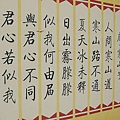 人問寒山道
寒山路不通
夏天冰未釋
日出霧朦朧
似我何由屆
與君心不同
君心若似我